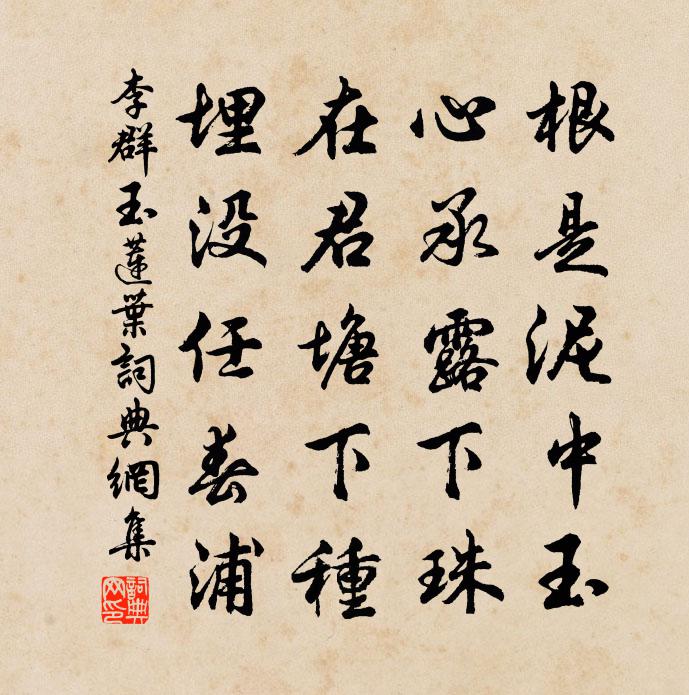 根是泥中玉
心承露下珠
在君塘下種
埋没任春浦
李群玉蓮葉詞典網集
詞典網印